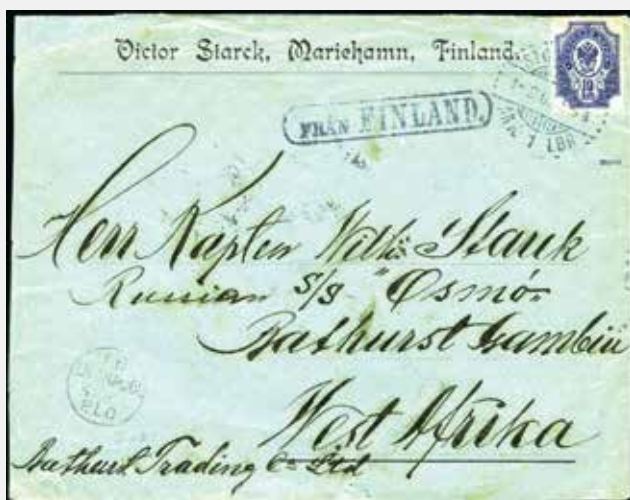 Victor Starck, Mariehamn, Finland.
10
FRÅN FINLAND.
Herr Kapten Wilh: Stark
Russian S/S "Osmo"
Bathurst Gambia
West Afrika
Bathurst Trading Co Ltd